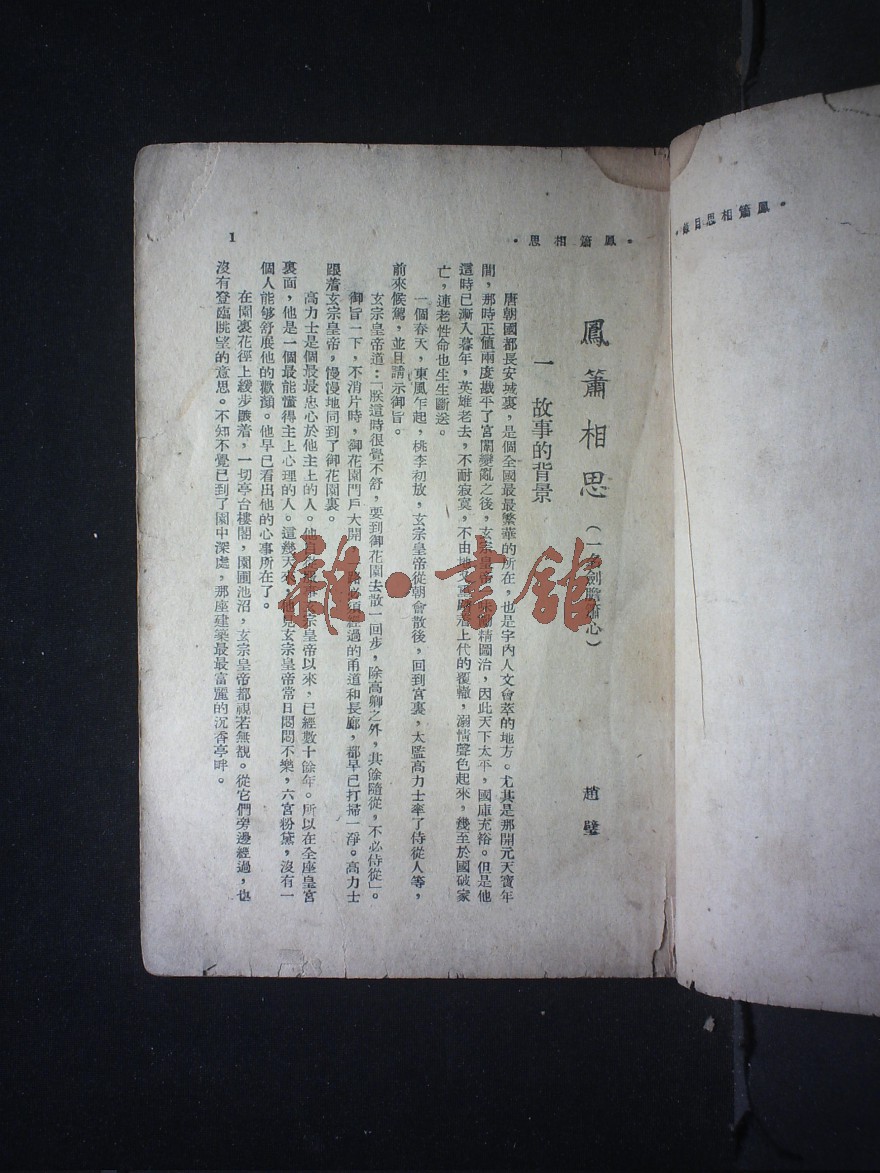 鳳簫相思目錄
鳳簫相思
1
鳳簫相思（一名劍膽簫心）
趙璧
一 故事的背景
唐朝國都長安城裏，是個全國最最繁華的所在，也是宇內人文會萃的地方。尤其是那開元天寶年
間，那時正值兩度戡平了宮闈變亂之後，玄宗皇帝一味勵精圖治，因此天下太平，國庫充裕。但是他
這時已漸入暮年，英雄老去，不耐寂寞，不由上代的覆轍，溺情聲色起來，幾至於國破家
亡，連老性命也生生斷送。
一個春天，東風乍起，桃李初放，玄宗皇帝從朝會散後，回到宮裏，太監高力士率了侍從人等，
前來候駕，並且請示御旨。
玄宗皇帝道：「朕這時很覺不舒，要到御花園去散一回步，除高卿之外，其餘隨從，不必侍從」。
御旨一下，不消片時，御花園門戶大開，必須經過的甬道和長廊，都早已打掃一淨。高力士
跟着玄宗皇帝，慢慢地同到了御花園裏。
高力士是個最最忠心於他主上的人。他自玄宗皇帝以來，已經數十餘年。所以在全座皇宮
裏面，他是一個最能懂得主上心理的人。這幾天來，他見玄宗皇帝常日悶悶不樂，六宮粉黛，沒有一
個人能够舒展他的歡顏。他早已看出他的心事所在了。
在園裏花徑上緩步踱着，一切亭台樓閣，園圃池沼，玄宗皇帝都視若無覩。從它們旁邊經過，也
沒有登臨眺望的意思。不知不覺已到了園中深處，那座建築最最富麗的沉香亭畔。
雜·書館